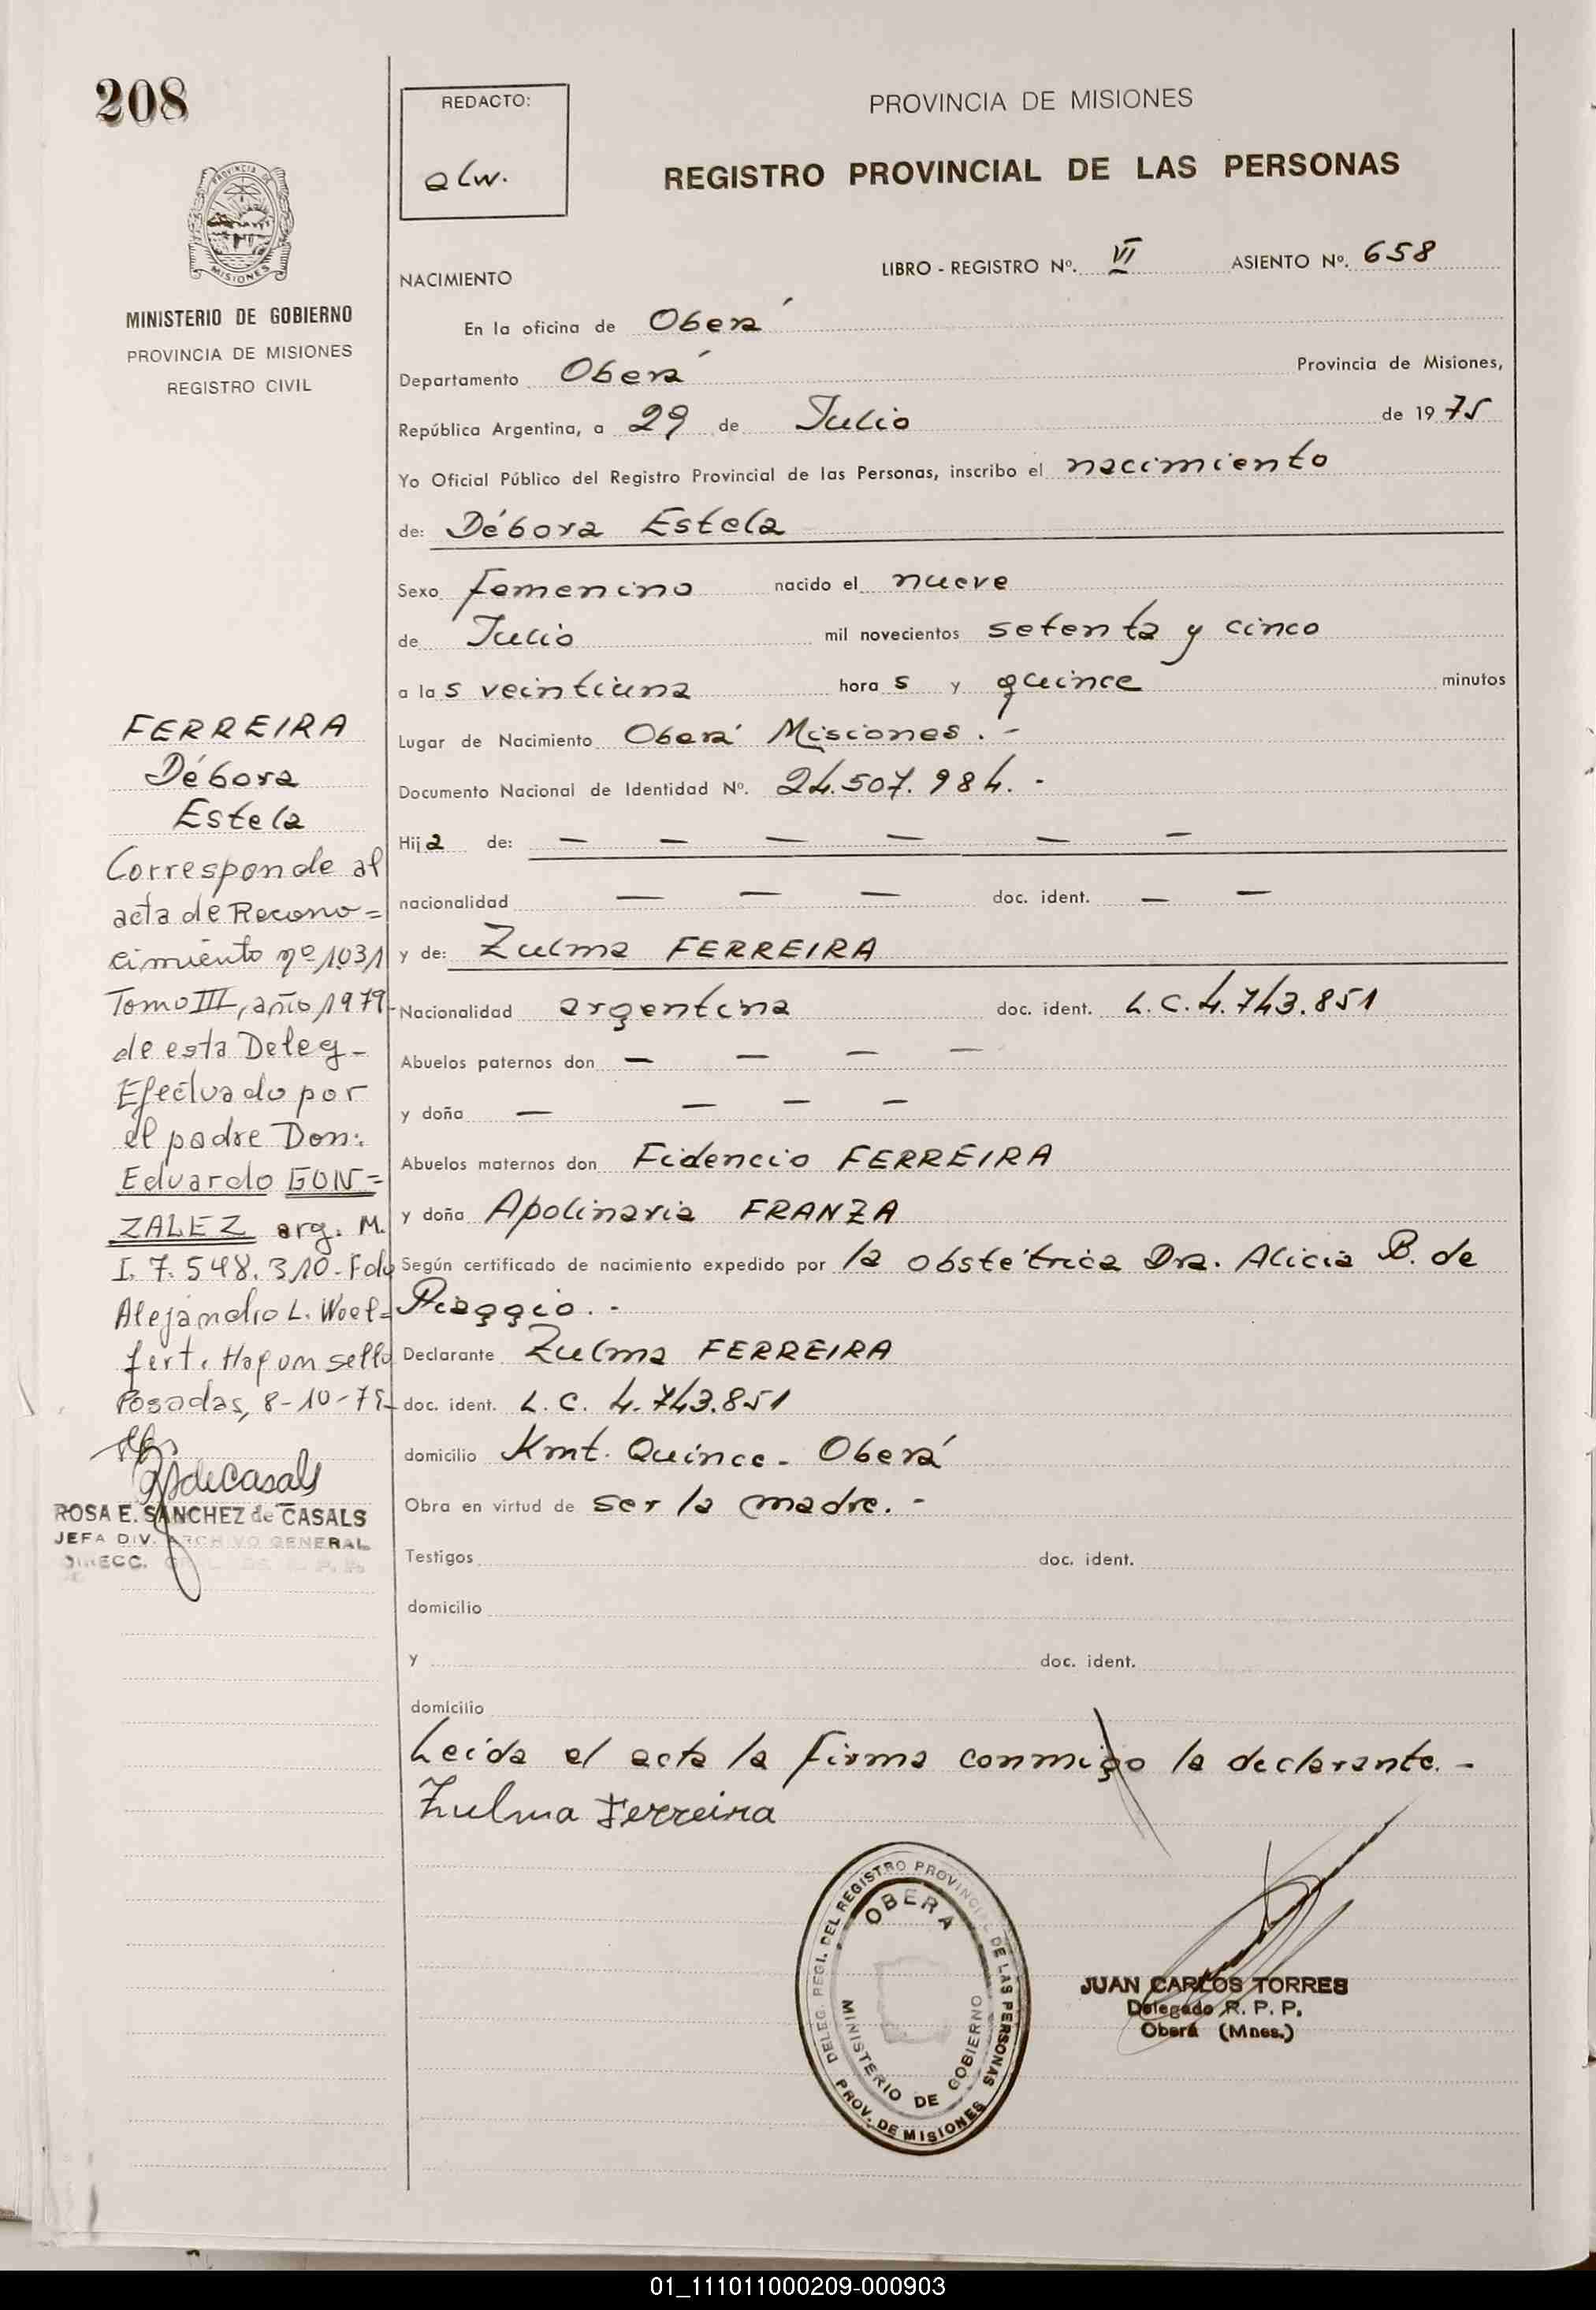 208
REDACTO:
alw.
PROVINCIA DE MISIONES
REGISTRO PROVINCIAL DE LAS PERSONAS
LIBRO - REGISTRO Nº. VI ASIENTO Nº. 658
PROVINCIA DE
MISIONES
MINISTERIO DE GOBIERNO
PROVINCIA DE MISIONES
REGISTRO CIVIL
NACIMIENTO
En la oficina de Oberá
Departamento Oberá Provincia de Misiones,
República Argentina, a 29 de Julio de 1975
Yo Oficial Público del Registro Provincial de las Personas, inscribo el nacimiento
de: Débora Estela
Sexo femenino nacido el nueve
de Julio mil novecientos setenta y cinco
a las veintiuna horas y quince minutos
Lugar de Nacimiento Oberá Misiones. -
Documento Nacional de Identidad Nº. 24.507.984. -
Hija de: — — — — — —
nacionalidad — — — doc. ident. — —
y de: Zulma FERREIRA
Nacionalidad argentina doc. ident. L.C. 4.743.851
Abuelos paternos don — — — —
y doña — — — —
Abuelos maternos don Fidencio FERREIRA
y doña Apolinaria FRANZA
Según certificado de nacimiento expedido por la obstétrica Dra. Alicia B. de
Piaggio. -
Declarante Zulma FERREIRA
doc. ident. L. C. 4.743.851
domicilio Kmt. Quince - Oberá
Obra en virtud de ser la madre. -
Testigos doc. ident.
domicilio
y doc. ident.
domicilio
Leída el acta la firma conmigo la declarante. -
Zulma Ferreira
FERREIRA
Débora
Estela
Corresponde al
acta de Recono=
cimiento nº 1031
Tomo III, año 1979-
de esta Deleg-
Efectuado por
el padre Don:
Eduardo GON=
ZALEZ arg. M.
I. 7.548.310- Fdo
Alejandro L. Woel=
fert. Hay un sello
Posadas, 8-10-79-
ROSA E. SANCHEZ de CASALS
JEFA DIV. ARCHIVO GENERAL
DIRECC.
DELEG. REGI. DEL REGISTRO PROVINCIAL DE LAS PERSONAS
OBERA
MINISTERIO DE GOBIERNO
PROV. DE MISIONES
JUAN CARLOS TORRES
Delegado R. P. P.
Oberá (Mnes.)
01_111011000209-000903